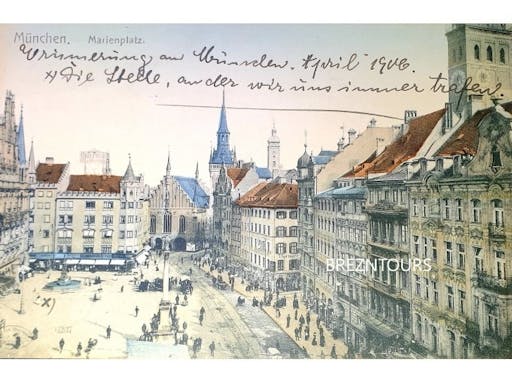 München. Marienplatz.
Erinnerung an München. April 1906.
x) Die Stelle, an der wir uns immer trafen.
BREZNTOURS
(x)